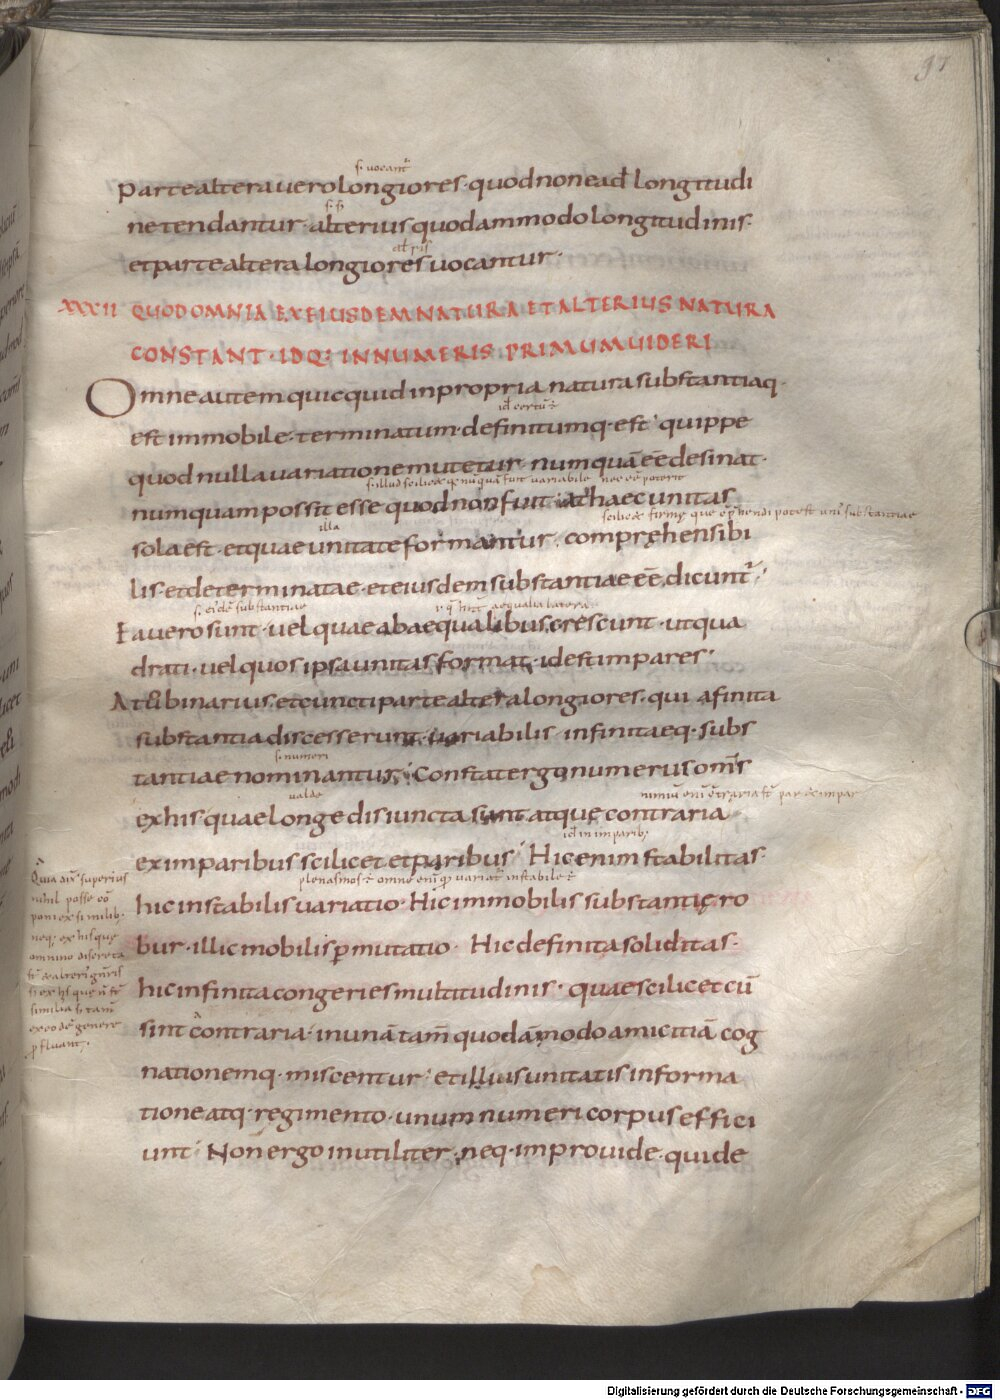 97
s. vocant̃
parte altera vero longiores · quod non ead̃ longitudi
s. s̄
ne tendantur · alterius quodammodo longitudinis ·
et parte altera longiores vocantur ·
XXXII QUOD OMNIA EX EIUSDEM NATURA ET ALTERIUS NATURA
CONSTANT · IDQ: IN NUMERIS PRIMUM UIDERI
Omne autem quicquid in propria natura substantiaq·
id certũ ÷
est immobile · terminatum · definitumq· est · quippe
quod nulla variatione mutetur · numquā eē desinat ·
numquam possit esse quod non fuit · at haec unitas
illa
sola est · et quae unitate formantur · compręhensibi
lis · et determinatae · et eiusdem substantiae eē, dicunt̃ ·
s. eidē substantiae aequalia latera
Ea vero sunt · vel quae ab aequalibus crescunt · ut qua
drati · vel quos ipsa unitas format, id est impares ·
At binarius · et cuncti parte altera longiores · qui a finita
substantia discesserunt · variabilis · infinitaeq· subs
s. numeri
tantiae nominantur · Constat ergo numerus om̃s
valde
ex his quae longe disiuncta sunt · atque contraria
id in imparib;
ex imparibus scilicet et paribus · Hic enim stabilitas ·
plenasmos ÷ omne eni q̣ variat̃ instabile ÷
hic instabilis variatio · Hic immobilis substantię ro
bur · illic mobilis p̄mutatio · Hic definita soliditas ·
hic infinita congeries multitudinis · quae scilicet cū
sint contraria · in unā tam̃ quodāmodo amicitiā cog
nationemq· miscentur · et illius unitatis informa
tione atq· regimento · unum numeri corpus effici
unt · Non ergo inutiliter · neq· improvide · qui de
Quia aiт̃ superius
nihil posse cō
poni ex similib·
neq· ex his quę
omnino discreta
similia s̄ tam̃
ex eodē genere
p̄fluant ·
Digitalisierung gefördert durch die Deutsche Forschungsgemeinschaft - DFG